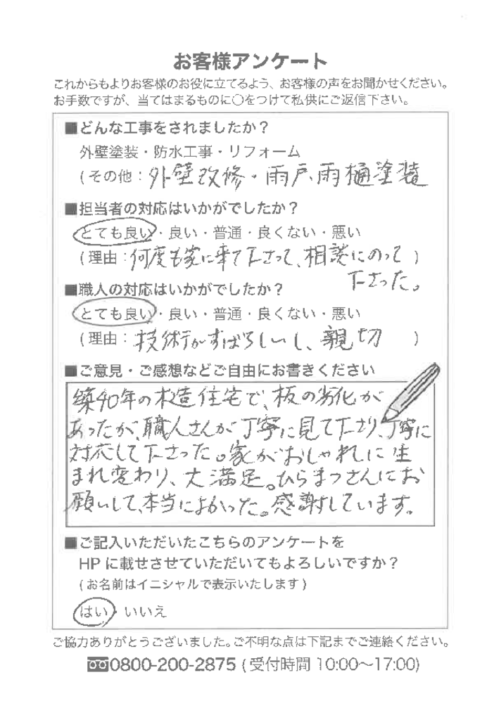 お客様アンケート
これからもよりお客様のお役に立てるよう、お客様の声をお聞かせください。
お手数ですが、当てはまるものに○をつけて私供にご返信下さい。
■どんな工事をされましたか？
外壁塗装・防水工事・リフォーム
(その他：外壁改修・雨戸、雨樋塗装
■担当者の対応はいかがでしたか？
とても良い・良い・普通・良くない・悪い
(理由：何度も家に来て下さって、相談にのって )
下さった。
■職人の対応はいかがでしたか？
とても良い・良い・普通・良くない・悪い
(理由：技術がすばらしいし、親切 )
■ご意見・ご感想などご自由にお書きください
築40年の木造住宅で、板の劣化が
あったが、職人さんが丁寧に見て下さり、丁寧に
対応して下さった。家がおしゃれに生
まれ変わり、大満足。ひらまつさんにお
願いして、本当によかった。感謝しています。
■ご記入いただいたこちらのアンケートを
HPに載せさせていただいてもよろしいですか？
(お名前はイニシャルで表示いたします)
はい・いいえ
ご協力ありがとうございました。ご不明な点は下記までご連絡ください。
0800-200-2875 (受付時間 10:00〜17:00)